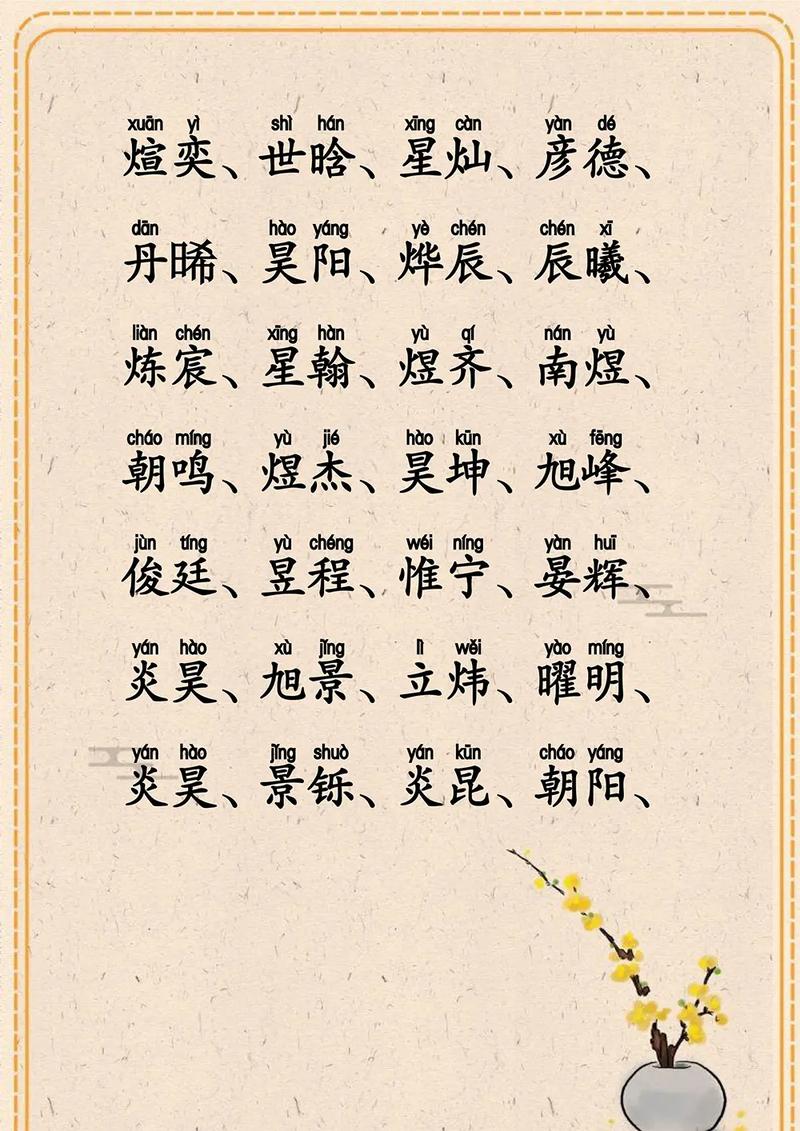 xuān yì shì hán xīng càn yàn dé
煊奕、世晗、星灿、彦德、
dān hào yáng yè chén chén xī
丹晞、昊阳、烨辰、辰曦、
liàn chén xīng hàn yù qí nán yù
炼宸、星翰、煜齐、南煜、
cháo míng yù jié hào kūn xù fēng
朝鸣、煜杰、昊坤、旭峰、
jùn tíng yù chéng wéi níng yàn huī
俊廷、昱程、惟宁、晏辉、
yán hào xù jǐng lì wěi yào míng
炎昊、旭景、立炜、曜明、
yán hào jǐng shuò yán kūn cháo yáng
炎昊、景铄、炎昆、朝阳、